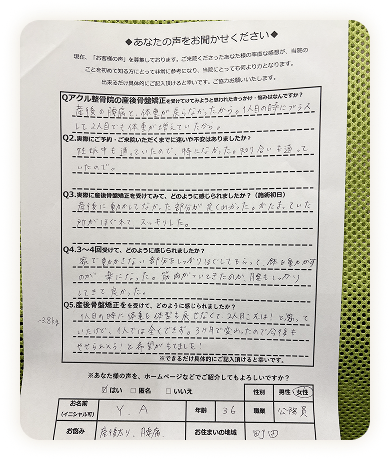 ◆あなたの声をお聞かせください◆
現在、「お客様の声」を募集しております。ご来院くださったあなた様の率直な感想が、当院の
ことを初めて知る方にとっては非常に参考になり、当院にとっても何よりの力となります。
出来るだけ具体的にご記入頂けると幸いです。ご協力お願いいたします。
Qアクル整骨院の産後骨盤矯正を受けてけてみようと思われたきっかけ・悩みはなんですか？
産後の腰痛と、体重が戻らなかったから。1人目の時に
して2人目でも体重が増えていたから。
Q2.実際にご予約・ご来院いただくまでに迷いや不安はありましたか？
妊娠中も通っていたので、特になかった。知り合いも通って
いたので。
Q3.実際に産後骨盤矯正を受けてみて、どのように感じられましたか？（施術初日）
産後に動かしてなかった部分が よくわかった。かたまっていた
所がほぐれて スッキリした。
Q4.3～4回受けて、どのように感じられましたか？
家で 動かさない部分をしっかりほぐしてもらって、体を動かす
のが 楽になった。筋肉がついてきたのか、腰もしっかり
してきて 良かった。
Q5.産後骨盤矯正をを受けて、どのように感じられましたか？
-3.8kg
1人目の時に体重も体型も戻せなくて 2人目こそは！と思って
いたけど、1人では全くできず。3ヶ月で変わったので今後も
やせられそう！と希望がもてました！
※できるだけ具体的にご記入頂けると幸いです。
※あなた様の声を、ホームページなどでご紹介してもよろしいですか？
☑はい □匿名 □いいえ
性別 男性・女性
お名前
(イニシャル可) Y・A 年齢 36 職業 公務員
お悩み 産後太り、腰痛 お住まいの地域 町田